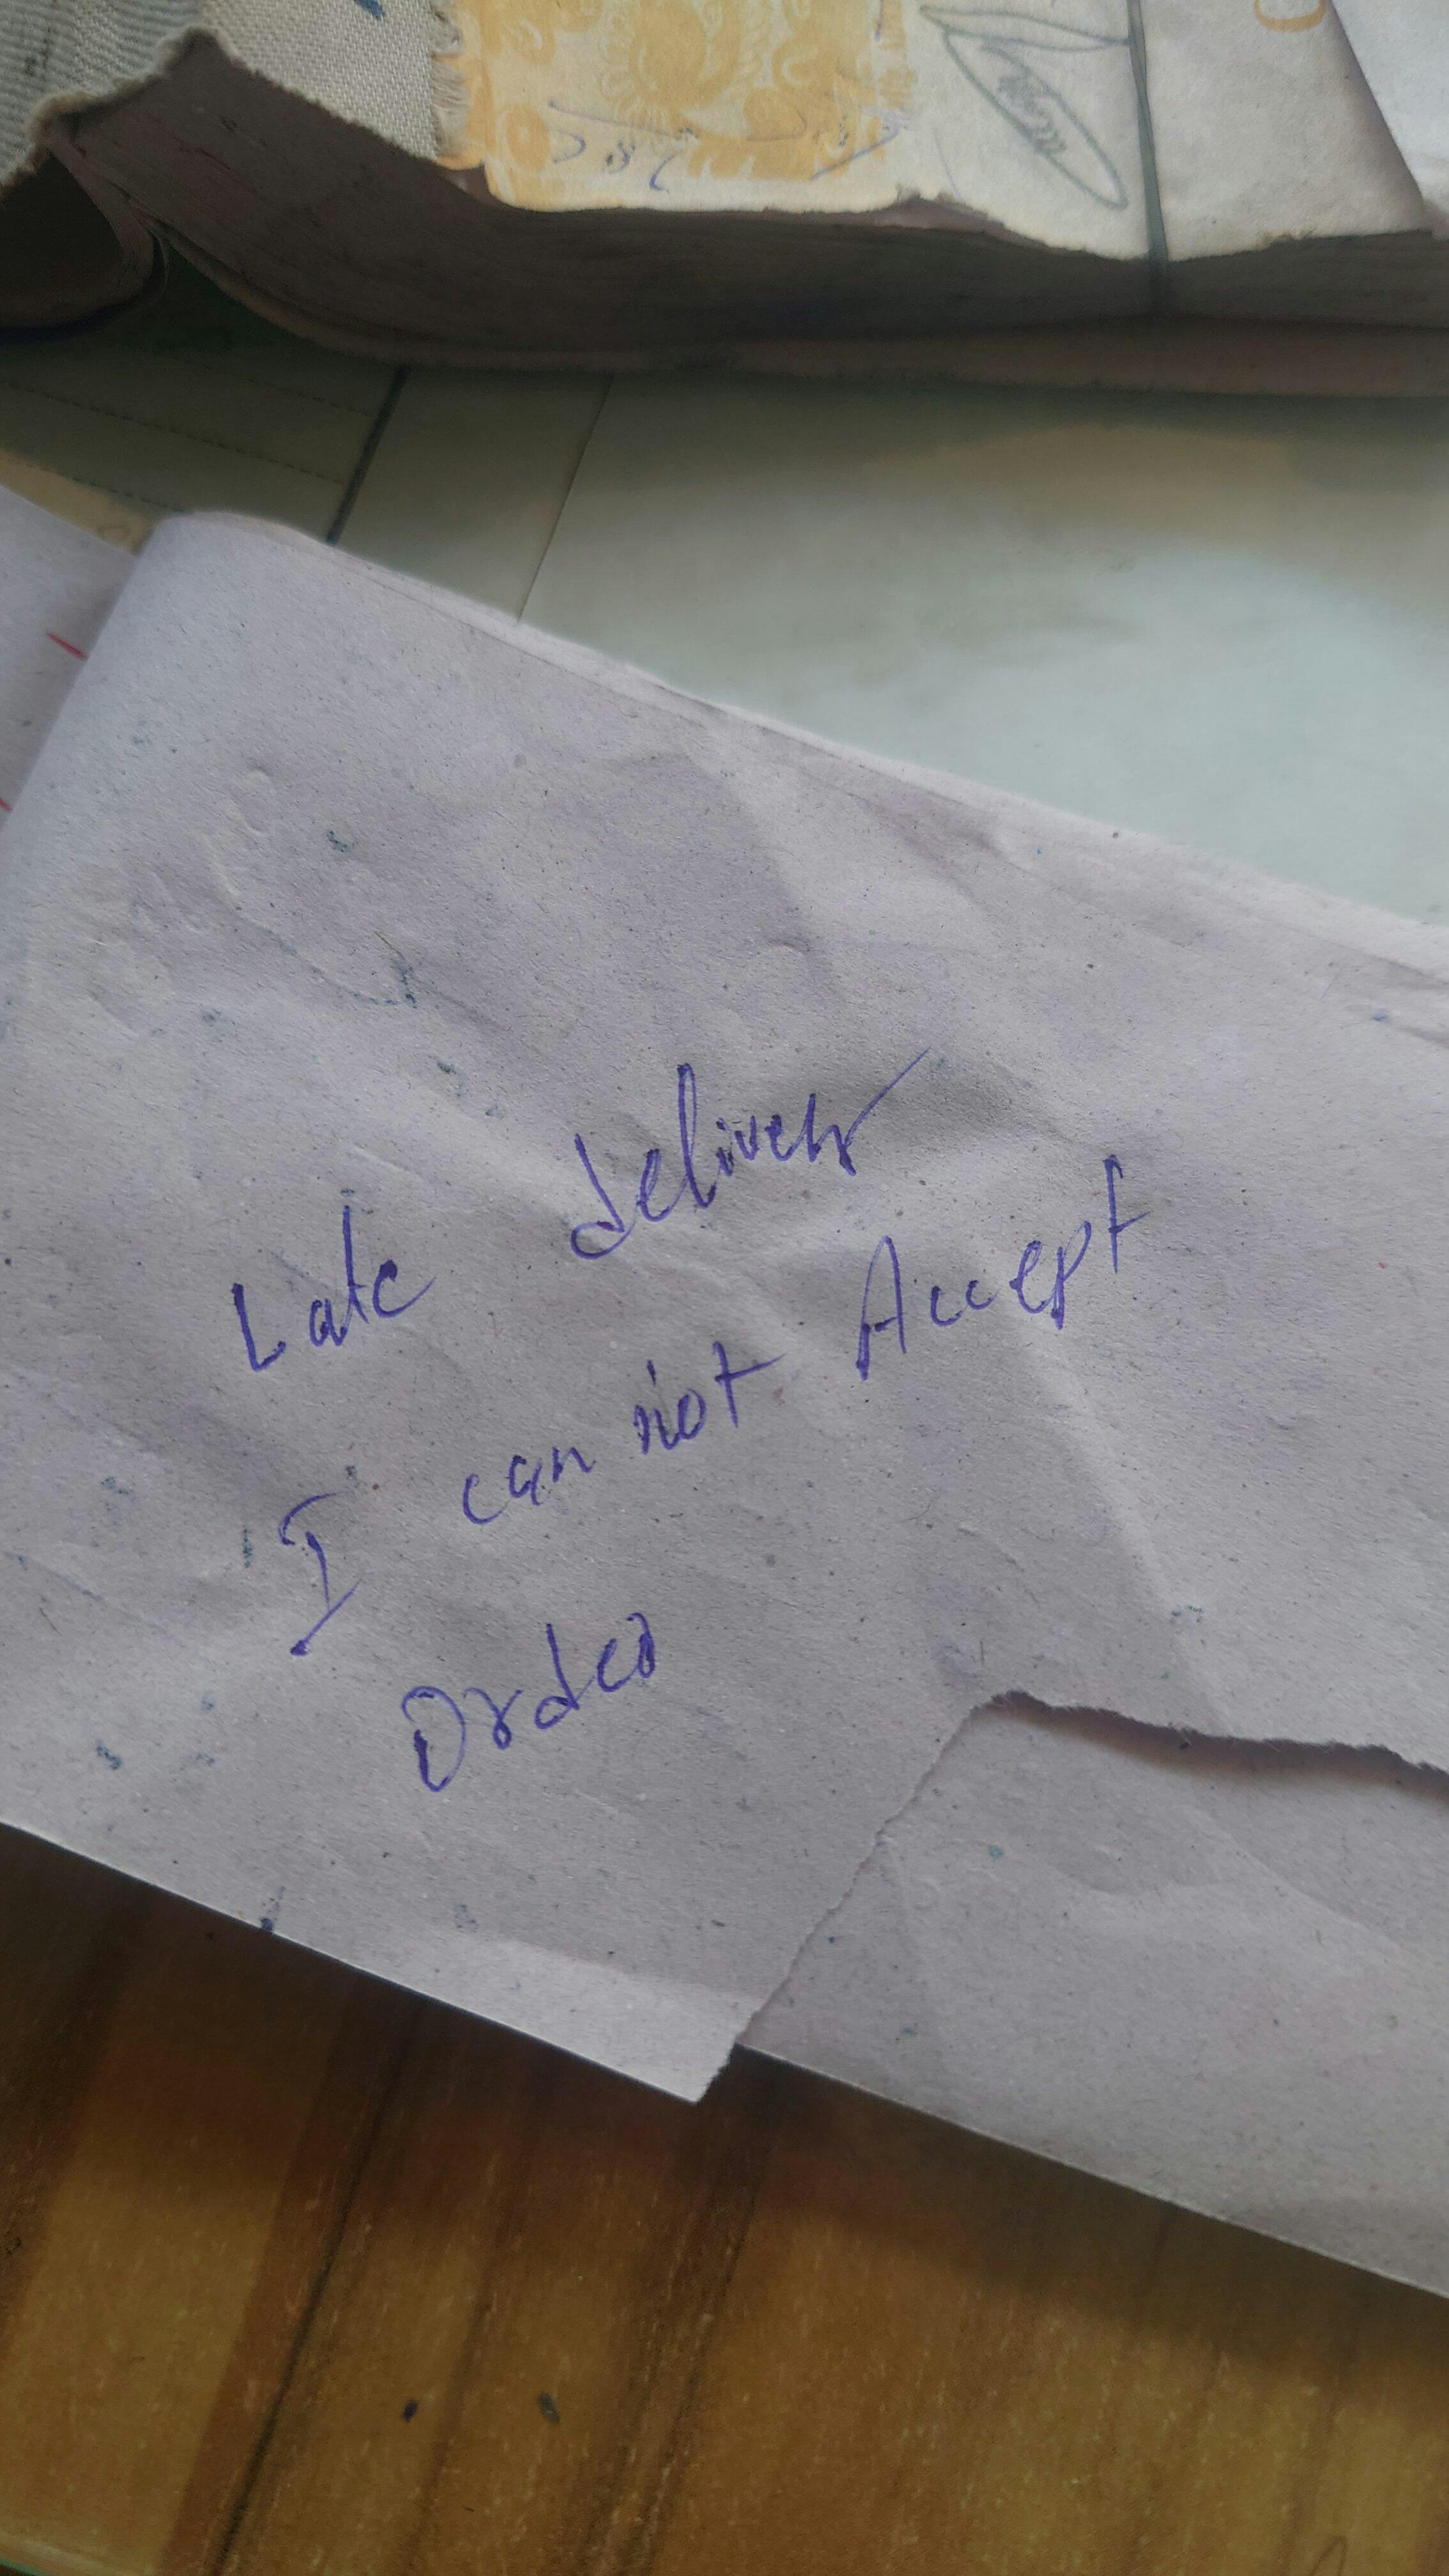 Late deliver
I can not Accept
Order